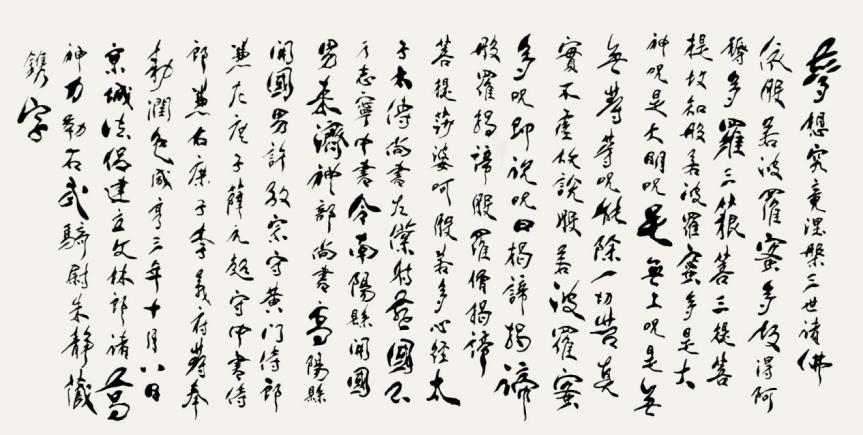 夢想究竟涅槃三世諸佛
依般若波羅蜜多故得阿
耨多羅三藐菩三提菩
提故知般若波羅蜜多是大
神呪是大明呪是無上呪是無
無等等呪能除一切苦真
實不虛故說般若波羅蜜
多呪即說呪曰揭諦揭諦
般羅揭諦般羅僧揭諦
菩提莎婆呵般若多心経太
子太傅尚書左僕射燕國公
于志寧中書令南陽縣開國
男来濟神部尚書高陽縣
開國男許敬宗守黄門侍郎
兼左庶子薛元超守中書侍
郎兼右庶子李義府等奉
勅潤色咸亨三年十月八日
京城法侶建立文林郎諸葛
神力勒石武騎尉朱靜藏
鐫字